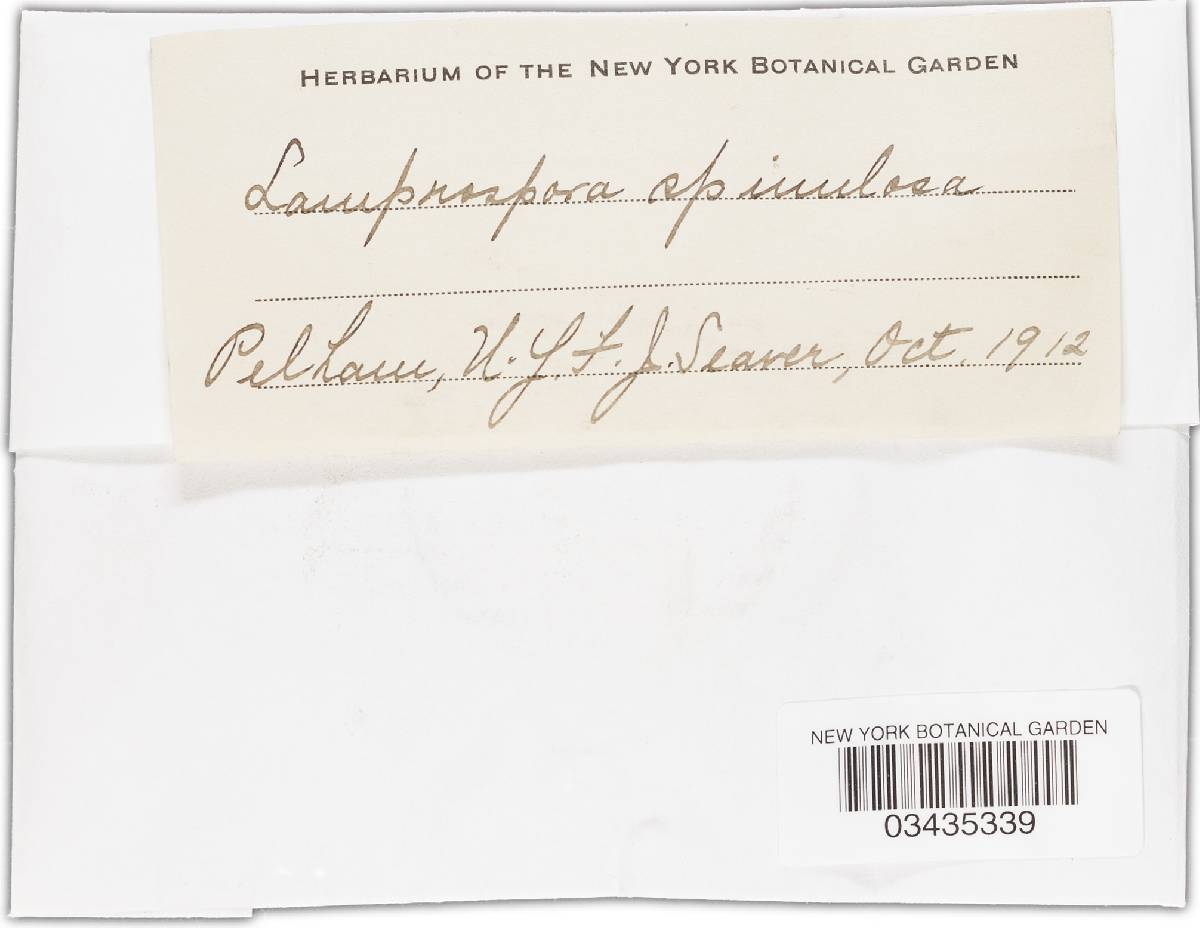 HERBARIUM OF THE NEW YORK BOTANICAL GARDEN
Lamprospora spinulosa
Pelham, N.Y. F.J. Seaver, Oct. 1912
NEW YORK BOTANICAL GARDEN
03435339